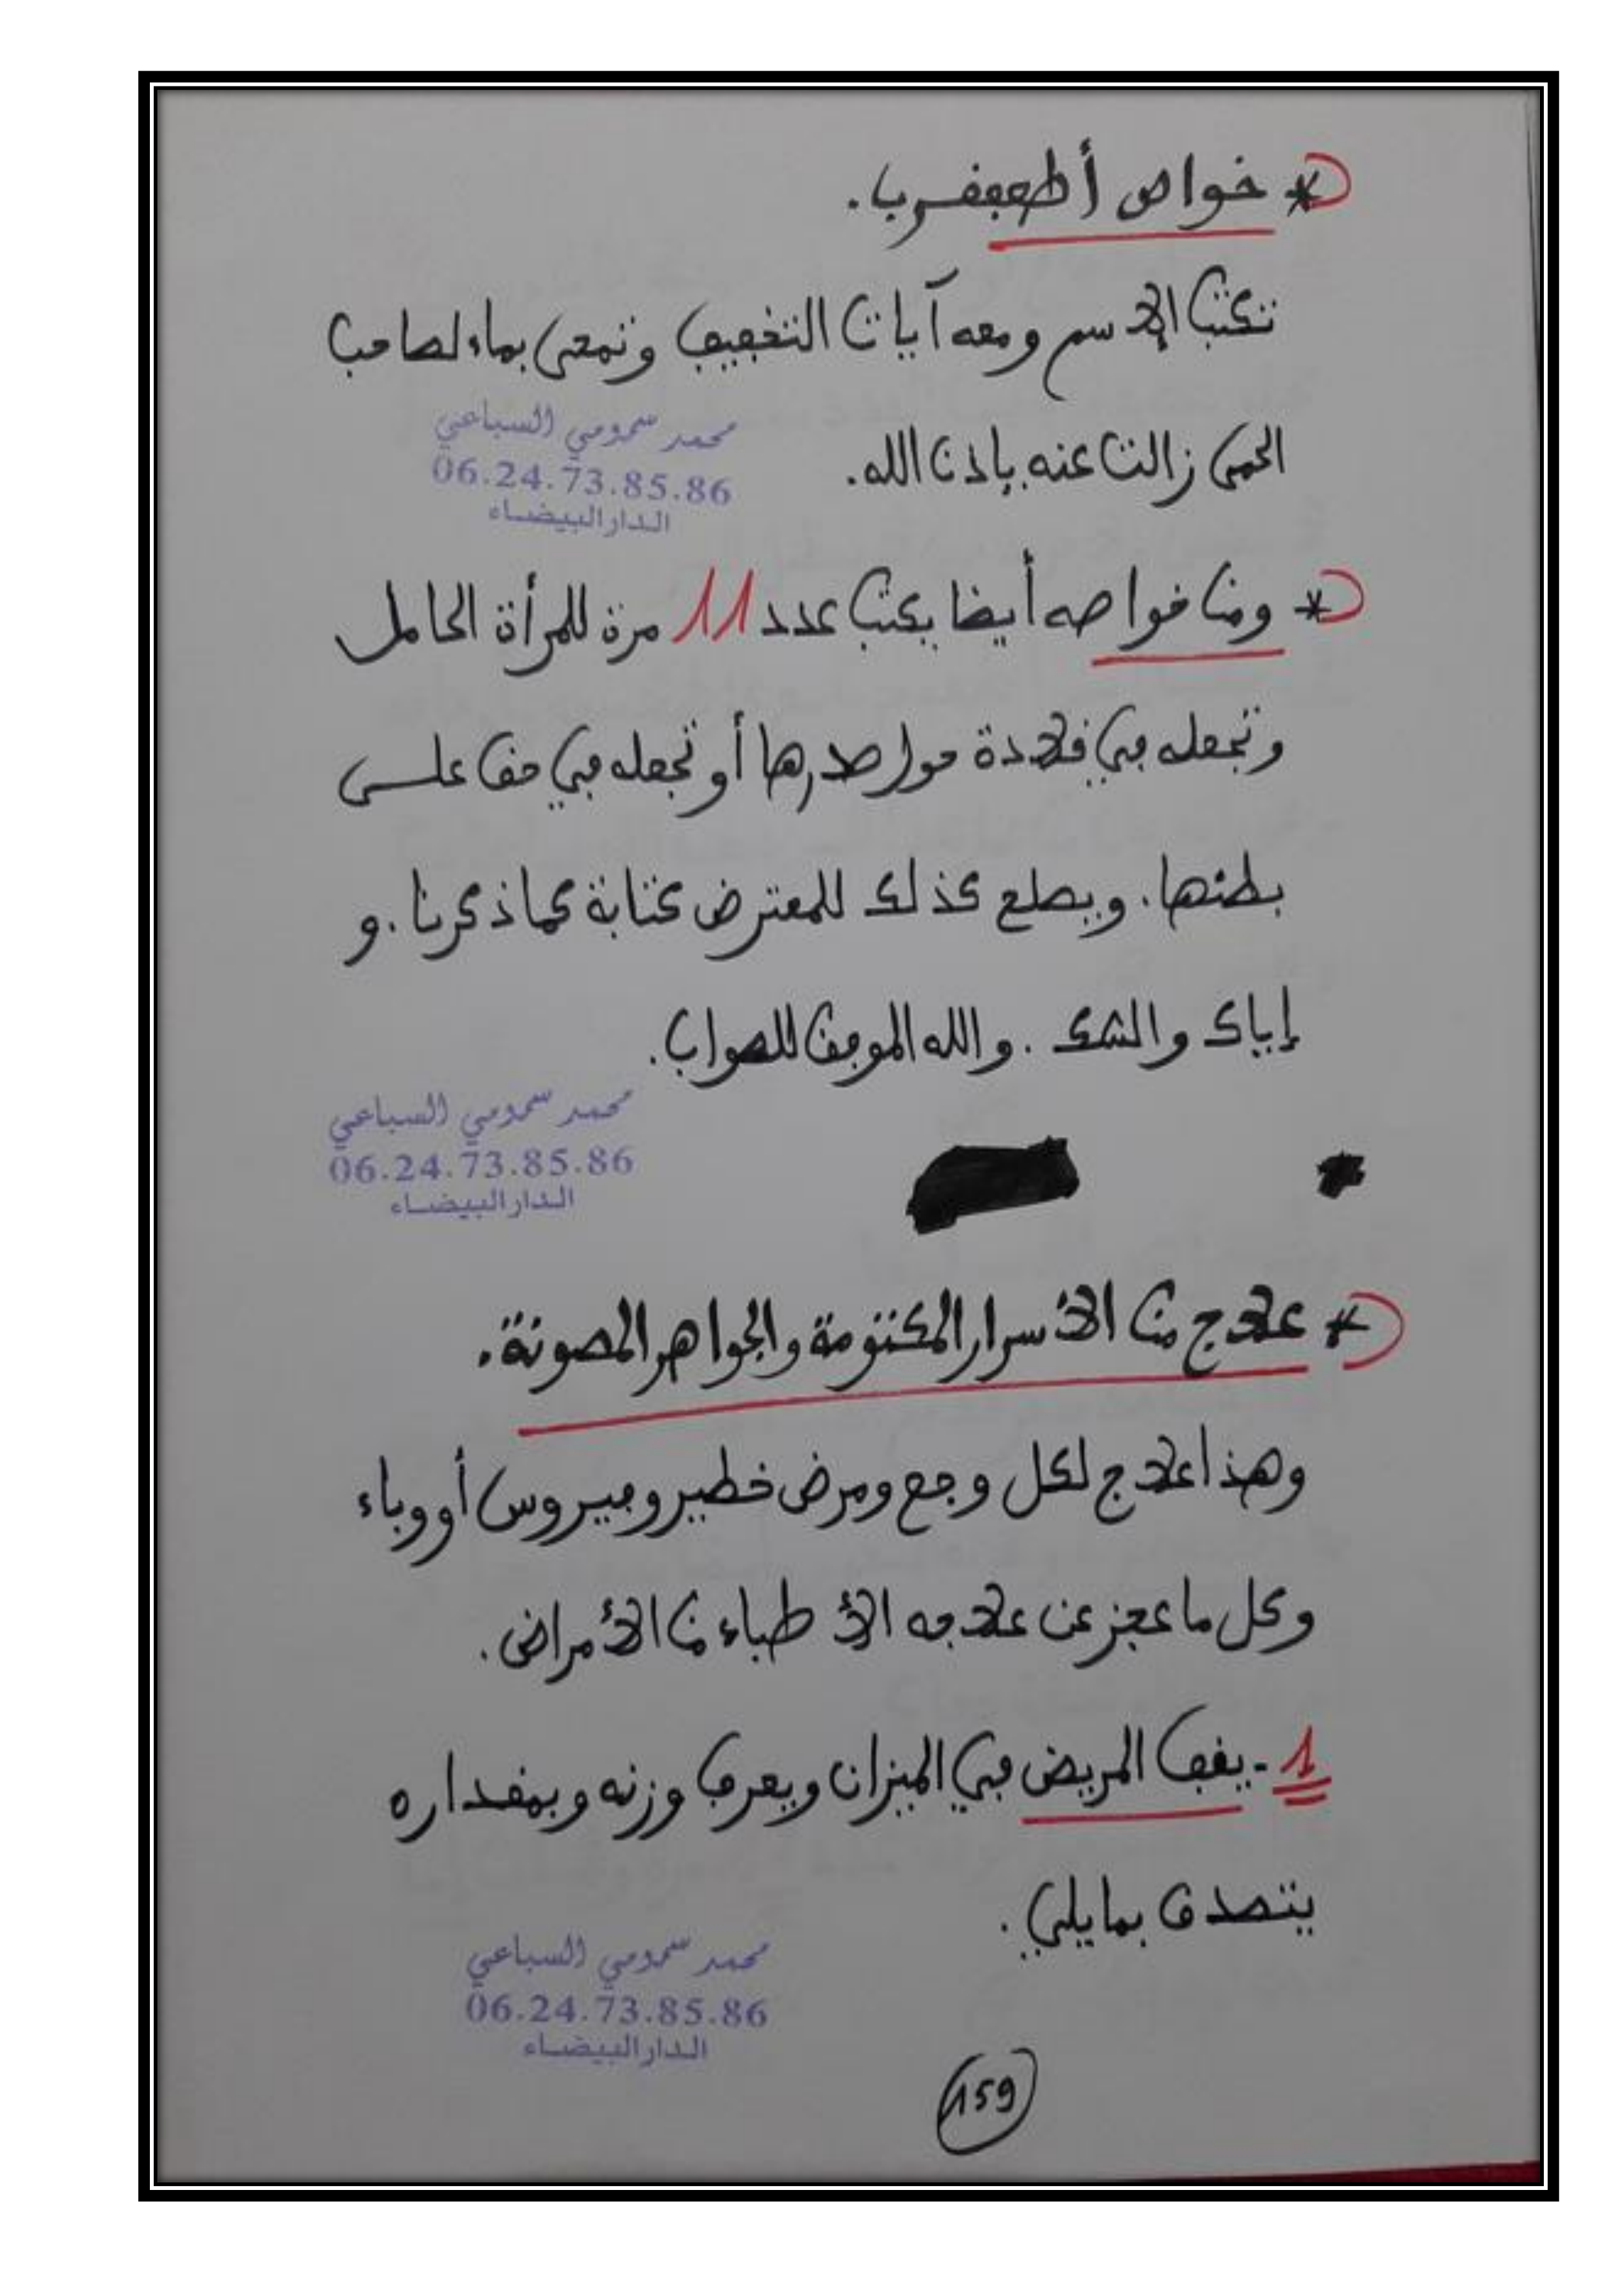 * خواص أطعيفرب.
تكتب الإسم ومعه آيات التخفيف وتمحى بماء لصاحب
الحمى زالت عنه بإذن الله.
محمد سمومي السباعي
06.24.73.85.86
الدار البيضاء
* ومن خواصه أيضا يكتب عدد 11 مرة للمرأة الحامل
وتجعله في قلادة حول صدرها أو تجعله في حق على
بطنها. ويصلح كذلك للمعترض كتابة كما ذكرنا. و
إياك والشك. والله الموفق للصواب.
محمد سمومي السباعي
06.24.73.85.86
الدار البيضاء
* علاج من الأسرار المكتومة والجواهر المصونة.
وهذا علاج لكل وجع ومرض خطير وفيروس أو وباء
وكل ما عجز عن علاجه الأطباء من الأمراض.
1 - يقف المريض في الميزان ويعرف وزنه وبمقداره
يتصدق بما يلي.
محمد سمومي السباعي
06.24.73.85.86
الدار البيضاء
159